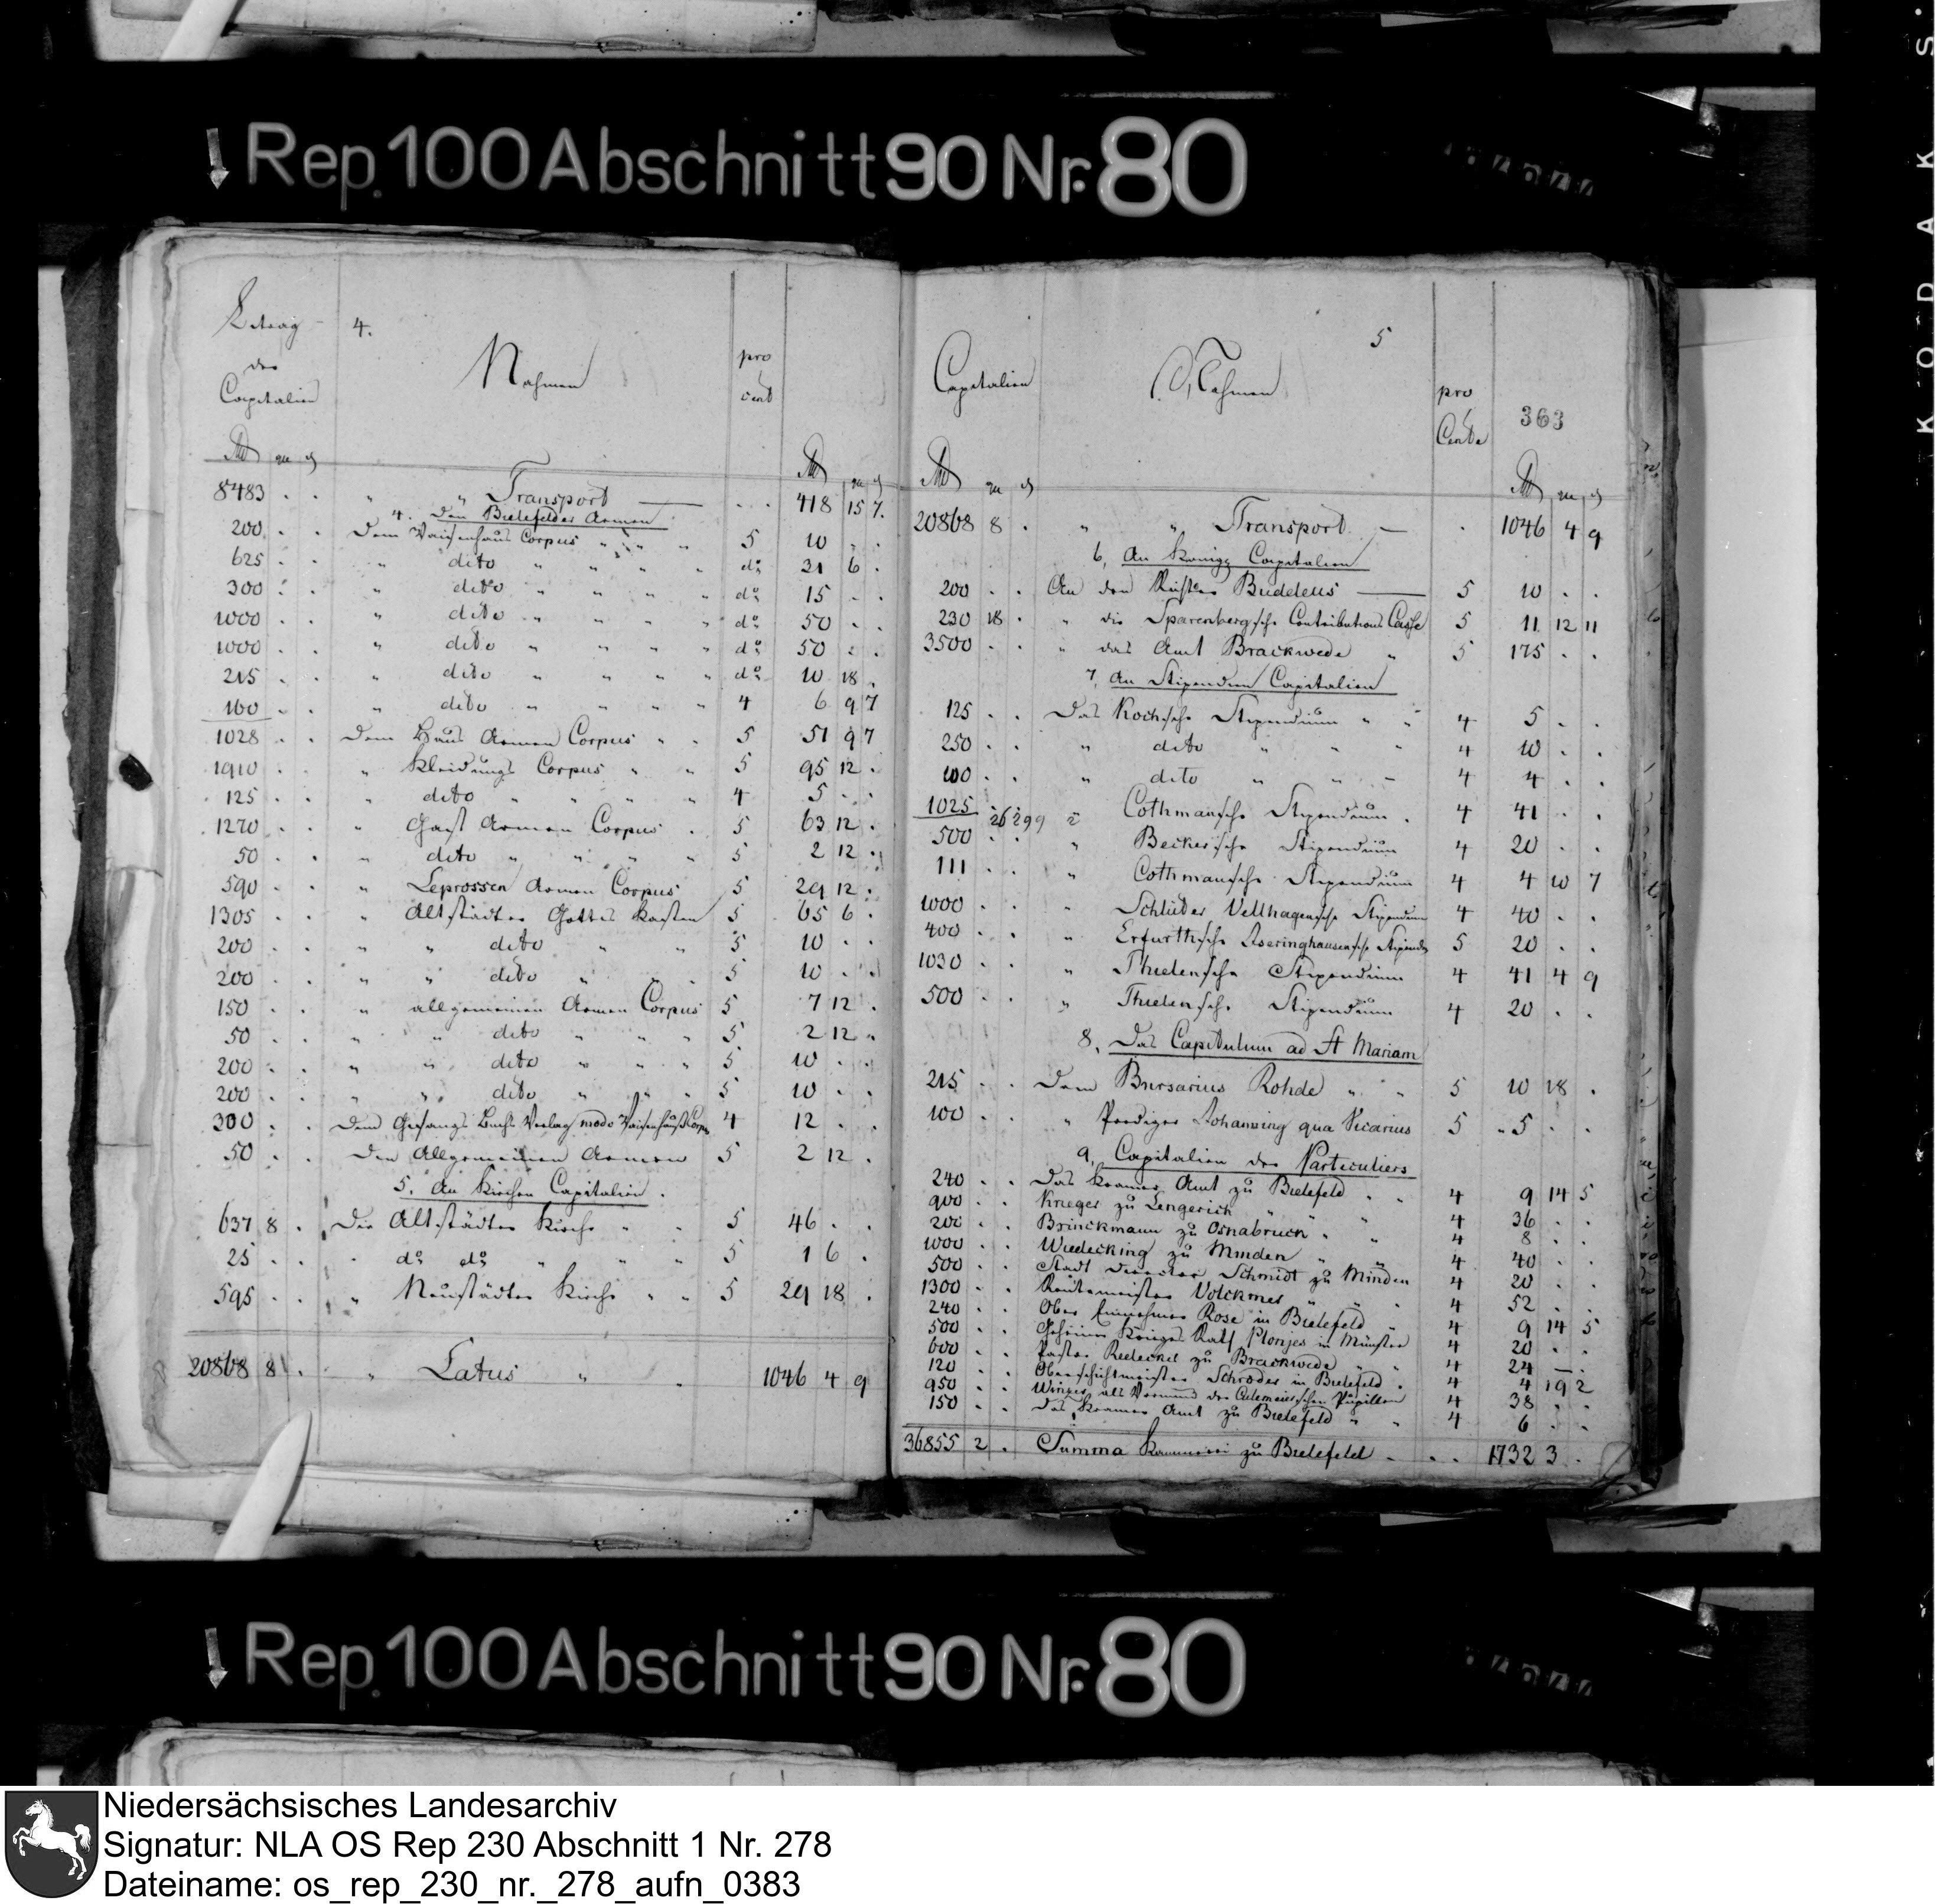 KODAK S
↓ Rep. 100 Abschnitt 90 Nr. 80
Betrag
der
Capitalien
4.
Nahmen
pro
cent
8483 . . " " Transport — . . 418 15 7.
4. Den Bielefelder Armen
200 . . Dem Waisenhaus Corpus " " " 5 10 . .
625 . . " dito " " " " do 31 6 .
300 . . " dito " " " " do 15 . .
1000 . . " dito " " " " do 50 . .
1000 . . " dito " " " " do 50 . .
215 . . " dito " " " " do 10 18 .
160 . . " dito " " " " 4 6 9 7
1028 . . Dem Haus Armen Corpus " . 5 51 9 7
1910 . . " Kleidungs Corpus " " 5 95 12 .
125 . . " dito " " " " 4 5 . .
1270 . . " Gast Armen Corpus . 5 63 12 .
50 . . " dito " " " " 5 2 12 .
590 . . " Leprosen Armen Corpus 5 29 12 .
1305 . . " Altstädter Gottes Kasten 5 65 6 .
200 . . " " dito " " 5 10 . .
200 . . " " dito " " . 5 10 . .
150 . . " allgemeinen Armen Corpus 5 7 12 .
50 . . " " dito " " " 5 2 12 "
200 . . " " dito " " " 5 10 . .
200 . . " " dito " " " 5 10 . .
300 . . Dem Gesangs Buchs Verlag modo Waisenhauß Corpus 4 12 . .
50 . . Den Allgemeinen Armen 5 2 12 .
5. An Kirchen Capitalien .
637 8 . Die Altstädter Kirche " . 5 46 . .
25 . . . do do " " " 5 1 6 .
595 . . " Neustädter Kirche " " 5 29 18 .
20868 8 . " Latus " . 1046 4 9
5
Capitalien
Nahmen
pro
Cento
363
20868 8 . " " Transport — . 1046 4 9
6, An Königl Capitalien
200 . . An den Küster Buddeus — 5 10 . .
230 18 . " die Sparenbergsche Contributions Casse 5 11 12 11
3500 . . " das Amt Brackwede " 5 175 . .
7, An Stipendien Capitalien
125 . . Das Kochsche Stipendium " " 4 5 . .
250 . . " dito " " " 4 10 . .
100 . . " dito " " – 4 4 . .
1025 . . " Cothmansche Stipendium . 4 41 . .
26299
500 . . " Beckersche Stipendium 4 20 . .
111 . . " Cothmansche Stipendium 4 4 10 7
1000 . . " Schlüter Vellhagensche Stipendium 4 40 . .
400 . . " Erfurthsche Iseringhausensche Stipendium 5 20 . .
1030 . . " Thielensche Stipendium 4 41 4 9
500 . . " Thielensche Stipendium 4 20 . .
8, Das Capitulum ad St Mariam
215 . . Dem Bursarius Rohde " " " 5 10 18 .
100 . . " Prediger Johanning qua Vicarius 5 " 5 . .
9, Capitalien der Particuliers
240 . . Das Kramer Amt zu Bielefeld . " 4 9 14 5
900 . . Krieger zu Lengerich " " " 4 36 . .
200 . . Brinckmann zu Osnabrück " " 4 8 . .
1000 . . Wiedecking zu Minden " " 4 40 . .
500 . . Stadt Director Schmidt zu Minden 4 20 . .
1300 . . Rentemeister Volckmer " " . 4 52 . .
240 . . Ober Einnehmer Rose in Bielefeld " 4 9 14 5
500 . . Geheimer Kriegs Rath Plonjes in Münster 4 20 . .
600 . . Pastor Redecker zu Brackwede " " 4 24 — .
120 . . Oberschichtmeister Schröder in Bielefeld . 4 4 19 2
950 . . Winzer als Vormund der Culemeierschen Pupillen 4 38 . .
150 . . Das Kramer Amt zu Bielefeld " " 4 6 . .
36855 2 . Summa Kaemmerei zu Bielefeld . . . 1732 3 .
↓ Rep. 100 Abschnitt 90 Nr. 80
Niedersächsisches Landesarchiv
Signatur: NLA OS Rep 230 Abschnitt 1 Nr. 278
Dateiname: os_rep_230_nr._278_aufn_0383